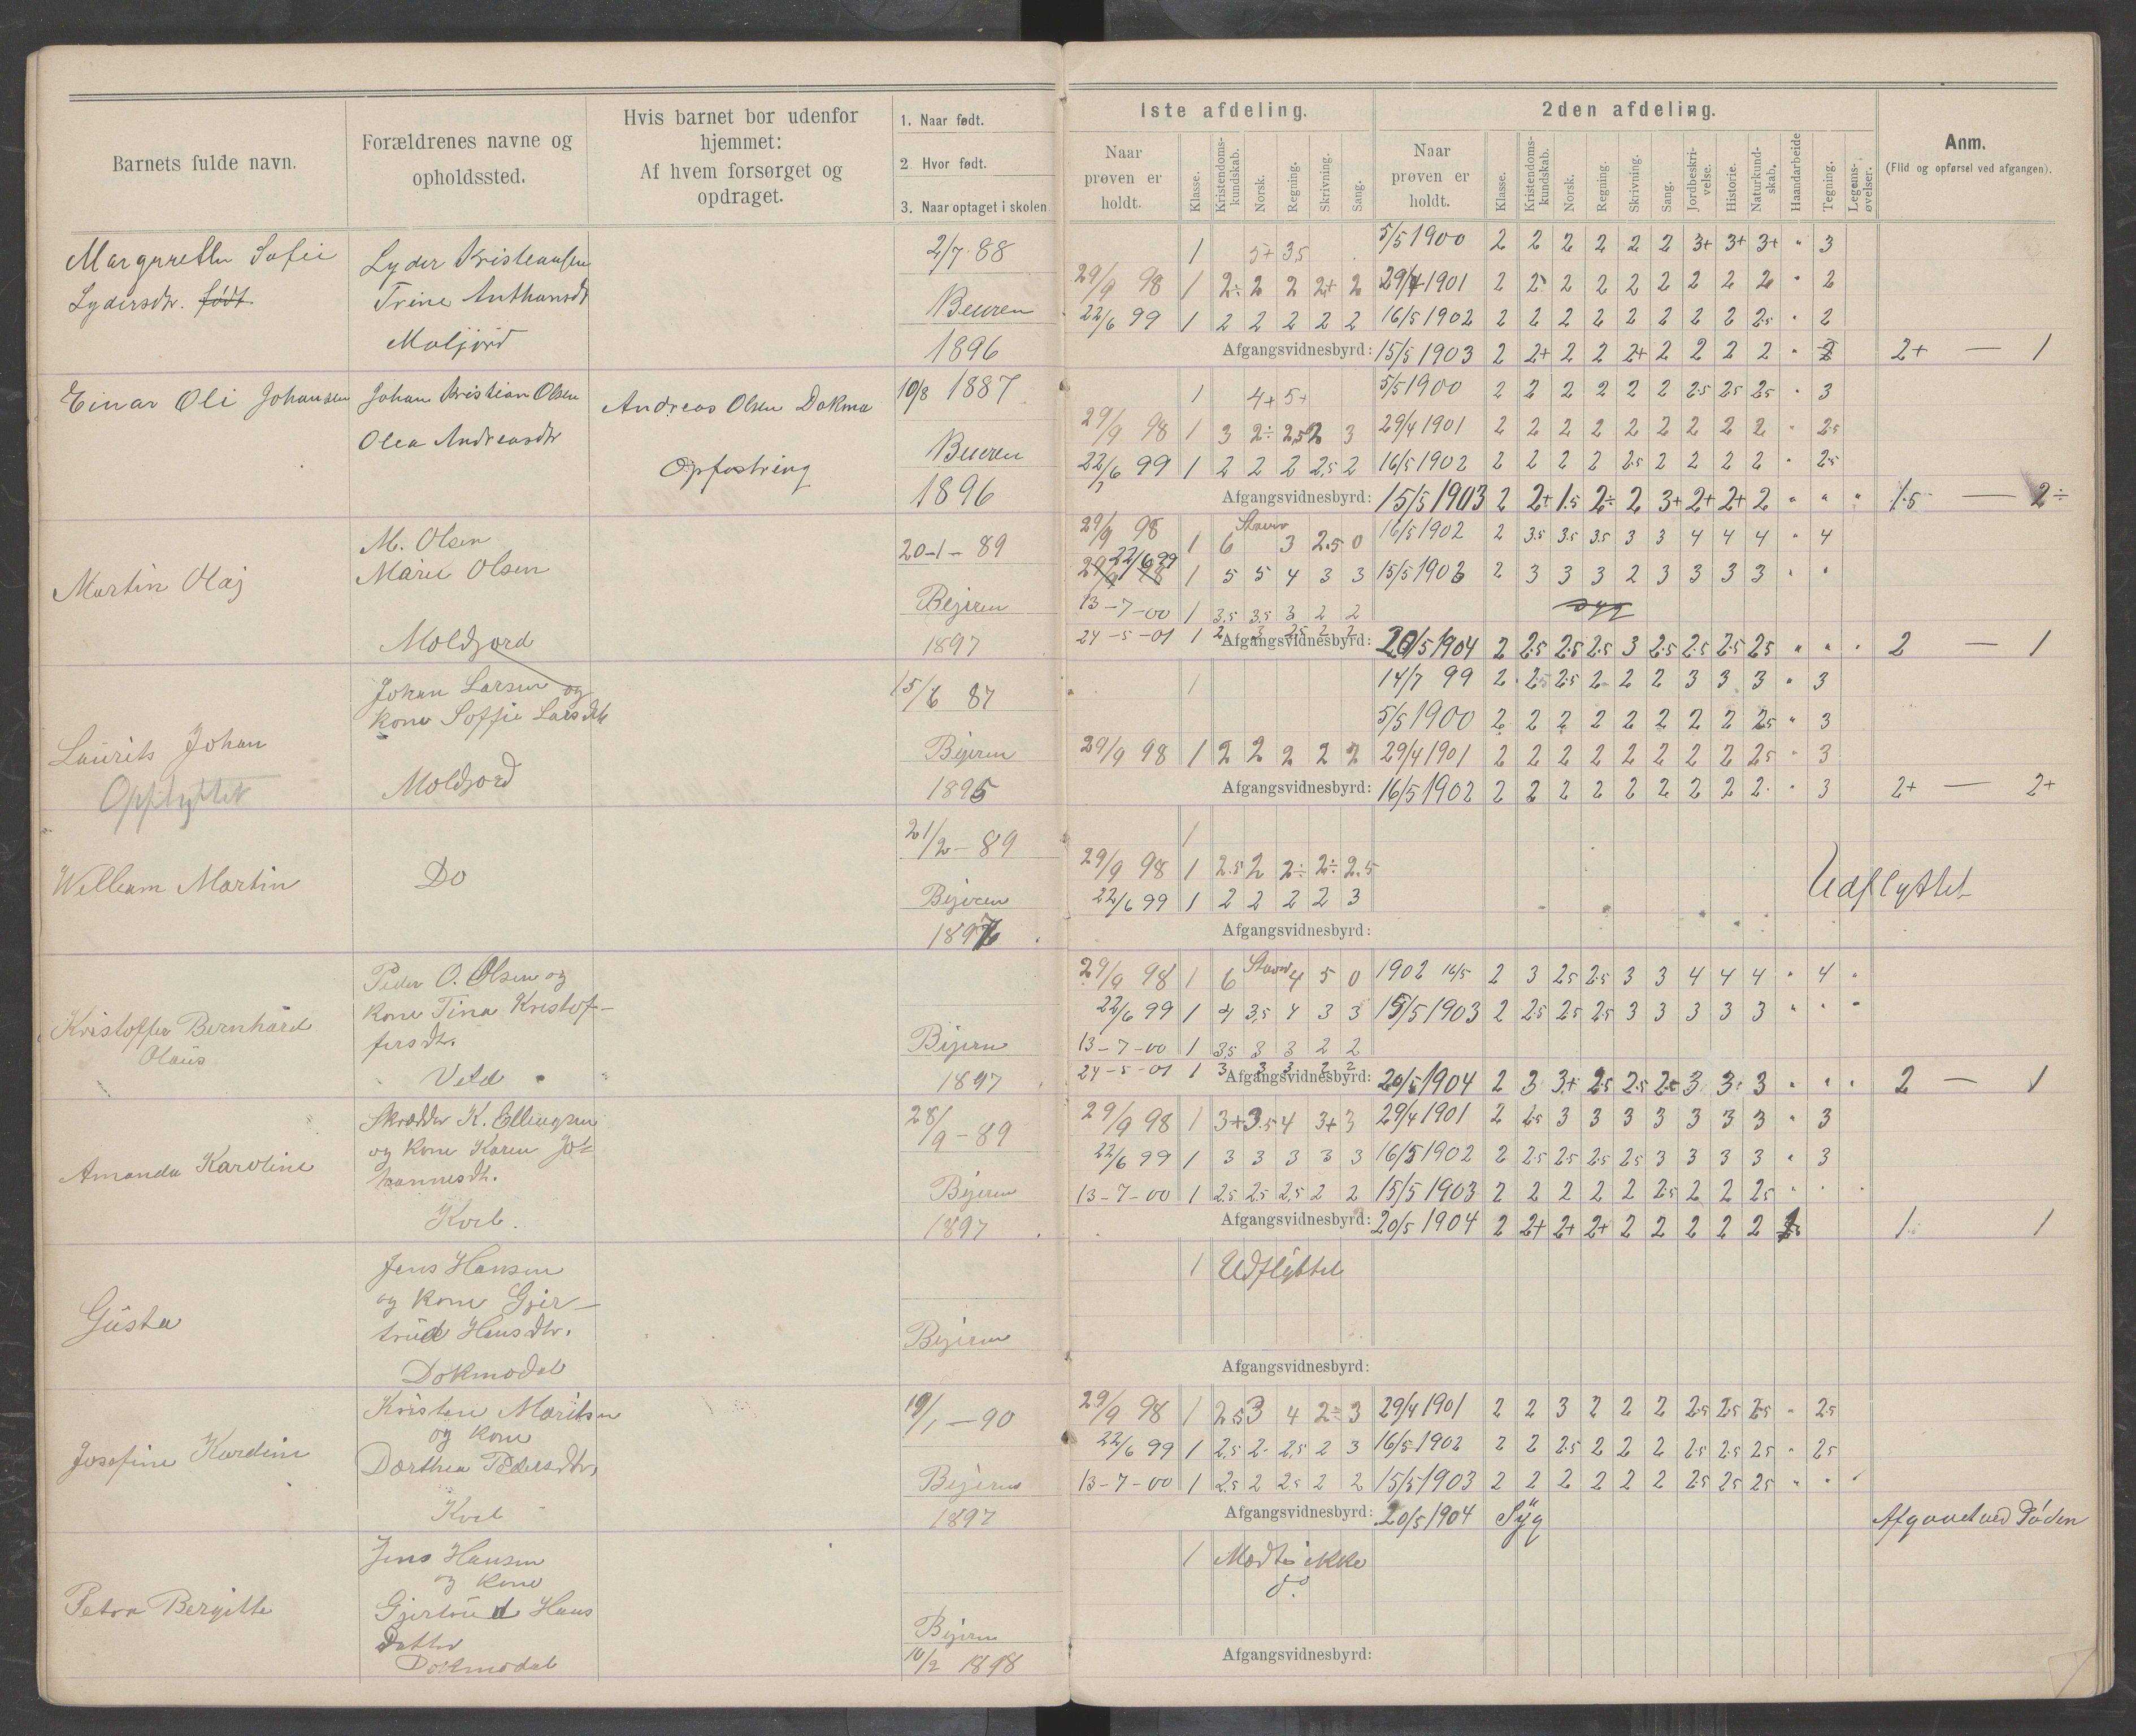 Barnets fulde navn.
Forældrenes navne og opholdssted.
Hvis barnet bor udenfor hjemmet:
Af hvem forsørget og opdraget.
1. Naar født.
2. Hvor født.
3. Naar optaget i skolen
1ste afdeling.
Naar prøven er holdt.
Klasse.
Kristendoms-kundskab.
Norsk.
Regning.
Skrivning.
Sang.
2den afdeling.
Naar prøven er holdt.
Klasse.
Kristendoms-kundskab.
Norsk.
Regning.
Skrivning.
Sang.
Jordbeskri-velse.
Historie.
Naturkund-skab.
Haandarbeide
Tegning.
Legems-øvelser.
Anm.
(Flid og opførsel ved afgangen).
Margrethe Sofie
Lydersdtr. født
Lyder Kristeansen
Trine Anthonsdt
Moljord
2/7 88
Beiaren
1896
1 5+ 3,5
5/5 1900 2 2 2 2 2 2 3+ 3+ 3+ " 3
29/9 98 1 2÷ 2 2 2+ 2
29/4 1901 2 2 2 2 2 2 2 2 2 " 2
22/6 99 1 2 2 2 2 2
16/5 1902 2 2 2 2 2 2 2 2 2.5 " 2
Afgangsvidnesbyrd: 15/5 1903 2 2+ 2 2 2+ 2 2 2 2 " 2
2+ — 1
Einar Oli Johansen
Johan Kristian Olsen
Olea Andreasdtr
Andreas Olsen Dokmo
Opfostring
10/8 1887
Beiaren
1896
1 4+ 5+
5/5 1900 2 2 2 2 2 2 2.5 2.5 2.5 " 3
29/9 98 1 3 2÷ 2,5 2 3
29/4 1901 2 2 2 2 2 2 2 2 2 " 2.5
22/6 99 1 2 2 2 2,5 2
16/5 1902 2 2 2 2 2.5 2 2 2 2 " 2.5
Afgangsvidnesbyrd: 15/5 1903 2 2+ 1.5 2÷ 2 3+ 2+ 2+ 2 " " "
1.5 — 2÷
Martin Olaj
M. Olsen
Marie Olsen
Moldjord
20-1- 89
Bejeren
1897
29/9 98 1 6 Staver 3 2.5 0
16/5 1902 2 3.5 3.5 3.5 3 3 4 4 4 " 4
22/6 99 1 5 5 4 3 3
15/5 1903 2 3 3 3 2 3 3 3 3 " "
13-7-00 1 3,5 3,5 3 2 2
syg
24-5-01 1 2 3 2.5 2 2
Afgangsvidnesbyrd: 20/5 1904 2 2.5 2.5 2.5 3 2.5 2.5 2.5 2.5 " " "
2 — 1
Laurits Johan
Opflyttet
Johan Larsen og
kone Soffie Larsdtr
Moldjord
15/6 87
Bejeren
1895
1
14/7 99 2 2.5 2.5 2 2 2 3 3 3 " 3
5/5 1900 2 2 2 2 2 2 2 2 2.5 " 3
29/9 98 1 2 2 2 2 2
29/4 1901 2 2 2 2 2 2 2 2 2.5 " 3
Afgangsvidnesbyrd: 16/5 1902 2 2 2 2 2 2 2 2 2 " 3
2+ — 2+
William Martin
Do
21/2 - 89
Bejeren
1
29/9 98 1 2.5 2 2÷ 2÷ 2.5
22/6 99 1 2 2 2 2 3
Udflyttet
Afgangsvidnesbyrd:
Kristoffer Bernhard
Olaüs
Peder O. Olsen og
kone Tina Kristof-
fersdtr.
Veld
Bejern
1897
29/9 98 1 6 Staver 4 5 0
1902 16/5 2 3 2.5 2.5 3 3 4 4 4 " 4 "
22/6 99 1 4 3,5 4 3 3
15/5 1903 2 2.5 2.5 2.5 3 3 3 3 3 " " "
13-7-00 1 3,5 3 3 2 2
24-5-01 1 3 3 3 2 2
Afgangsvidnesbyrd: 20/5 1904 2 3 3+ 2.5 2.5 2.5 3 3 3 " " "
2 — 1
Amanda Karoline
Skrædder K. Ellingsen
og kone Karen Jo-
hannesdtr.
Kvel.
28/9 - 89
Bejeren
1897
29/9 98 1 3+ 3.5 4 3+ 3
29/4 1901 2 2.5 3 3 3 3 3 3 3 " 3
22/6 99 1 3 3 3 3 3
16/5 1902 2 2.5 2.5 2.5 2.5 3 3 3 3 " 3
13-7-00 1 2,5 2,5 2,5 2 2
15/5 1903 2 2 2 2 2 2.5 2 2 2.5 " " "
Afgangsvidnesbyrd: 20/5 1904 2 2+ 2+ 2+ 2 2 2 2 2
1. 1
Güsta
Jens Hansen
og kone Gjer-
trüd Hansdtr.
Dokmodal
Bejeren
1 Udflyttet
Afgangsvidnesbyrd:
Josefine Kardine
Kristen Moritsen
og kone
Dorthea Pedersdtr.
Kvel
19/1 - 90
Bejeren
1897
29/9 98 1 2.5 3 4 2÷ 3
29/4 1901 2 2 3 2 2 2 2.5 2.5 2.5 " 2.5
22/6 99 1 2,5 2 2,5 2 3
16/5 1902 2 2 2.5 2 2 2 2.5 2.5 2.5 " 2.5
13-7-00 1 2,5 2 2,5 2 2
15/5 1903 2 2 2 2 2 2 2.5 2.5 2.5 " " "
Afgangsvidnesbyrd: 20/5 1904 Syg
Afgaaet ved Døden
Petra Bergitte
Jens Hansen
og kone
Gjertrüd Hans
Datter
Dokmodal
Bejern
10/2 1898
1 Mødte ikke
do
Afgangsvidnesbyrd: